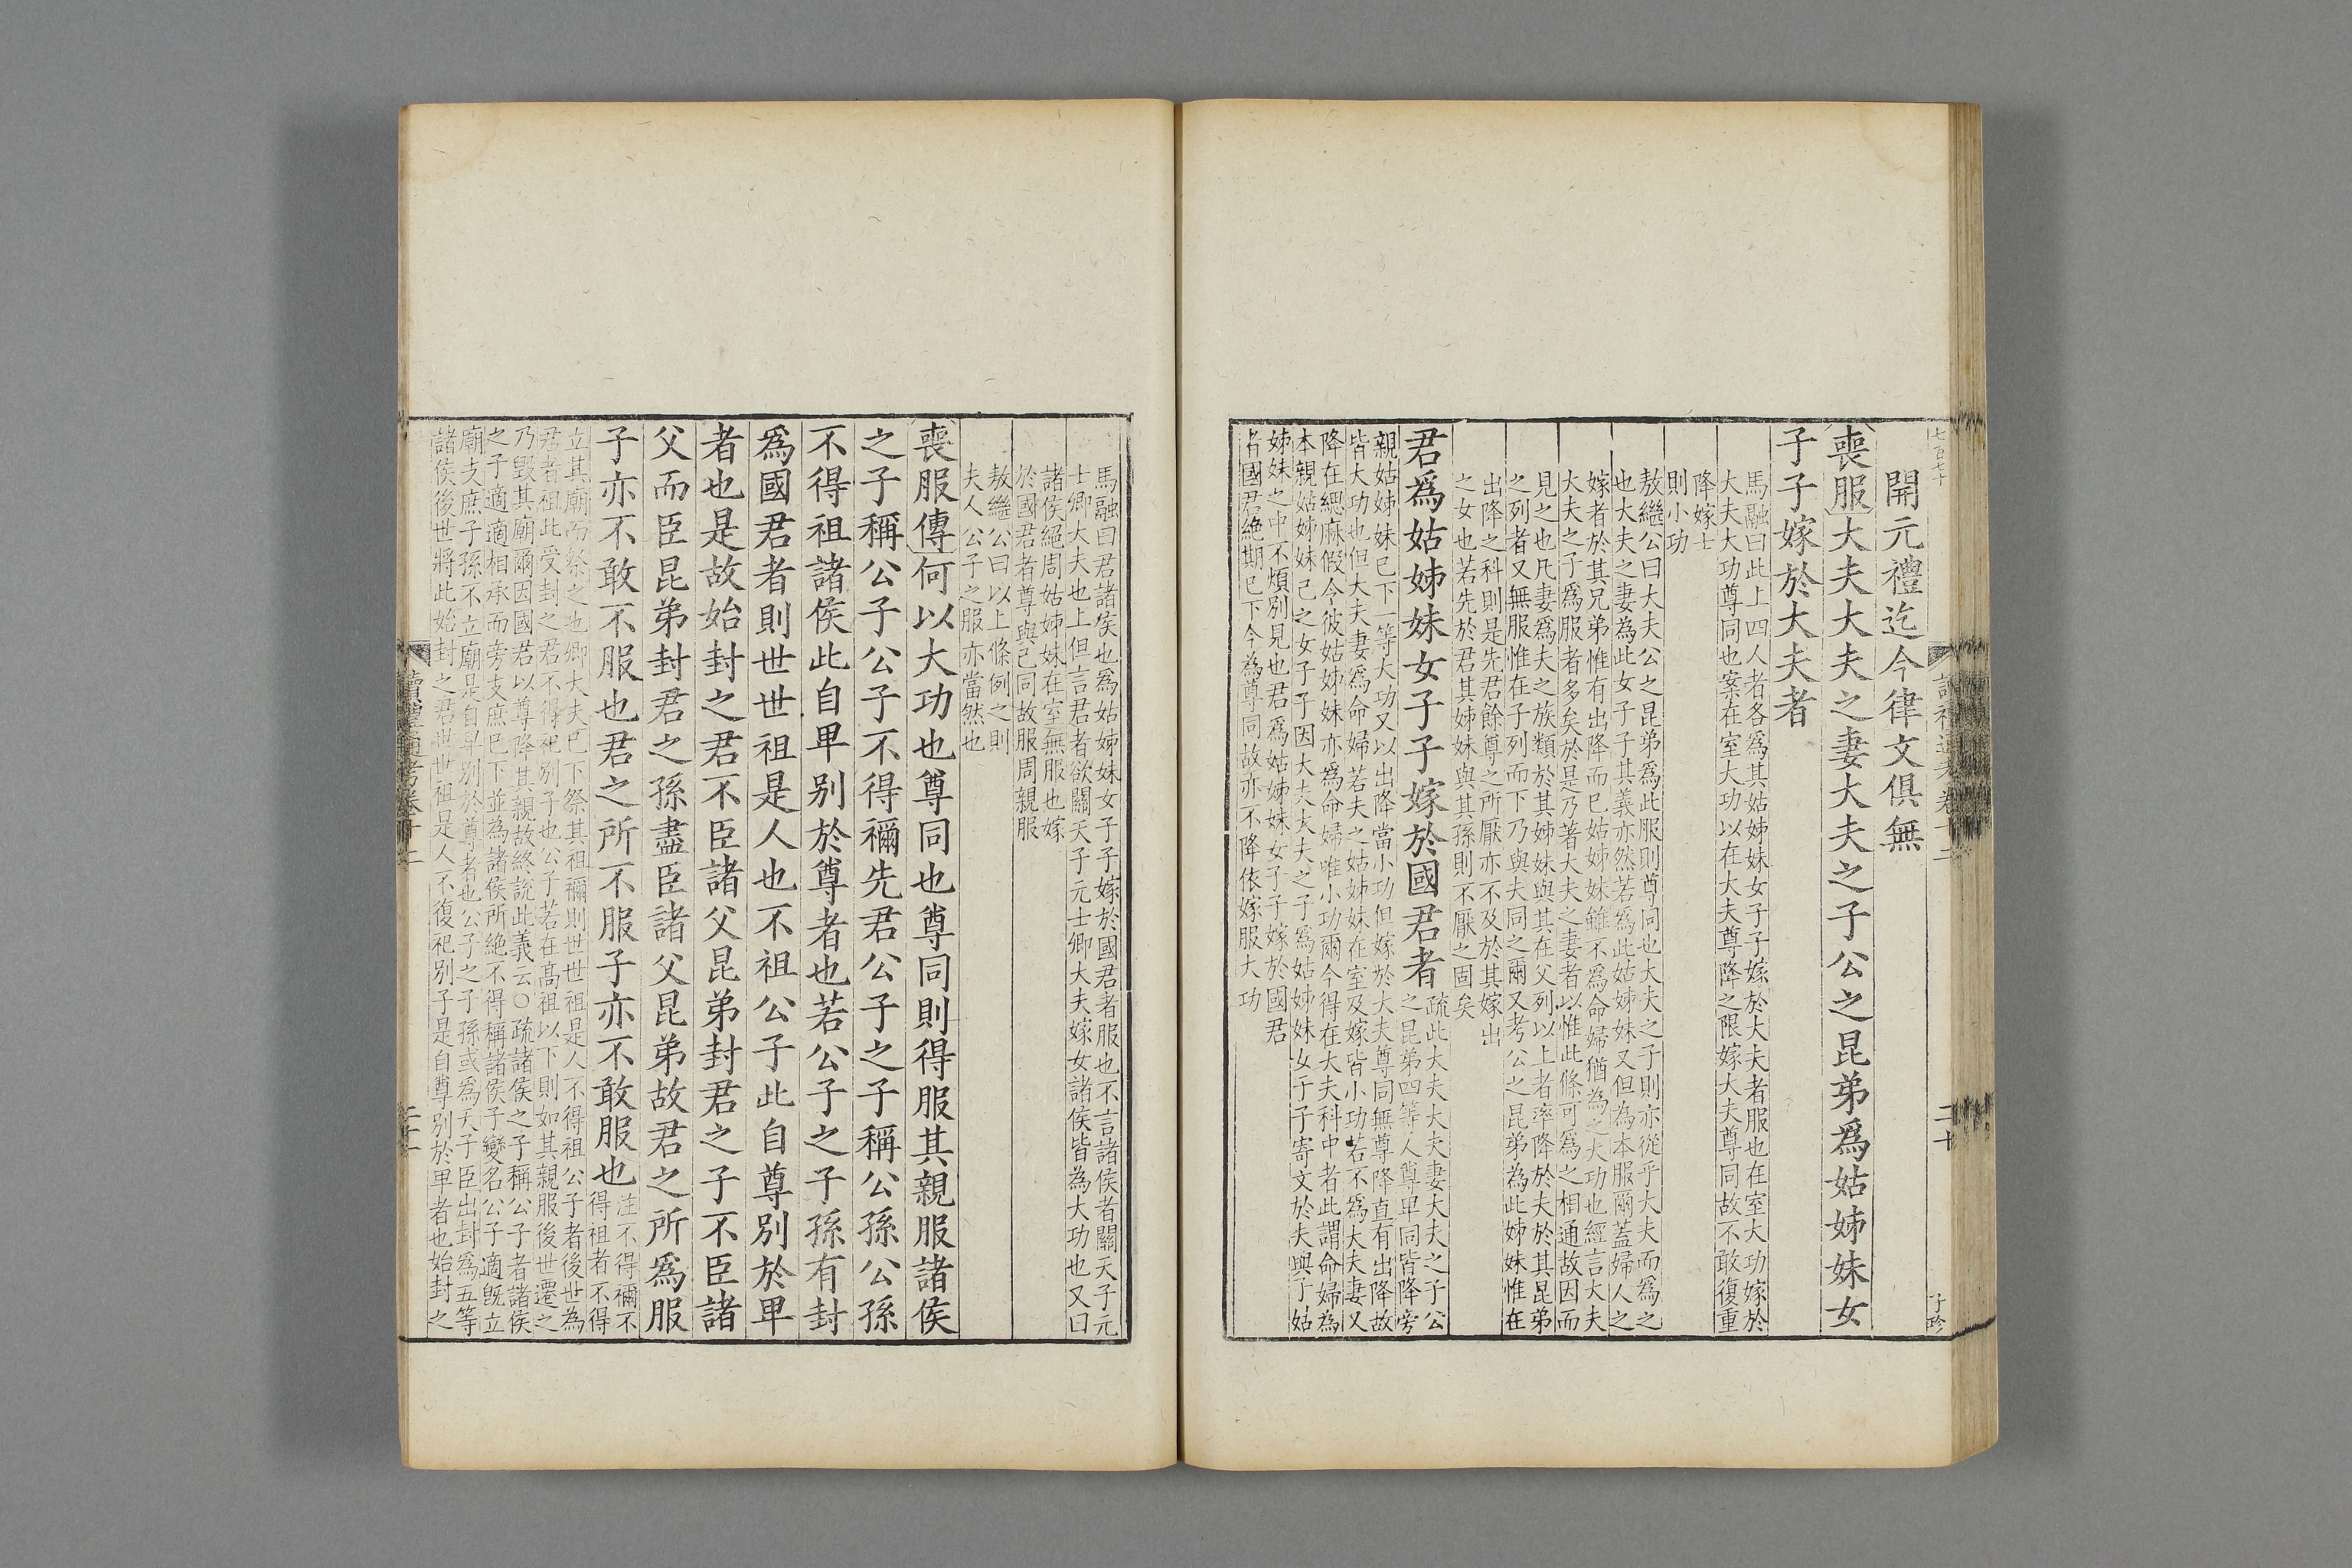 七百七十
讀禮通考卷十二
二十
子珍
開元禮迄今律文俱無
喪服大夫大夫之妻大夫之子公之昆弟爲姑姊妹女
子子嫁於大夫者
馬融曰此上四人者各爲其姑姊妹女子子嫁於大夫者服也在室大功嫁於
大夫大功尊同也案在室大功以在大夫尊降之限嫁大夫尊同故不敢復重
降嫁士
則小功
敖繼公曰大夫公之昆弟爲此服則尊同也大夫之子則亦從乎大夫而爲之
也大夫之妻為此女子子其義亦然若爲此姑姊妹又但為本服爾蓋婦人之
嫁者於其兄弟惟有出降而已姑姊妹雖不爲命婦猶為之大功也經言大夫
大夫之子爲服者多矣於是乃著大夫之妻者以惟此條可爲之相通故因而
見之也凡妻爲夫之族類於其姊妹與其在父列以上者率降於夫於其昆弟
之列者又無服惟在子列而下乃與夫同之爾又考公之昆弟為此姊妹惟在
出降之科則是先君餘尊之所厭亦不及於其嫁出
之女也若先於君其姊妹與其孫則不厭之固矣
君爲姑姊妹女子子嫁於國君者
疏此大夫大夫妻大夫之子公
之昆弟四等人尊卑同皆降旁
親姑姊妹已下一等大功又以出降當小功但嫁於大夫尊同無尊降直有出降故
皆大功也但大夫妻爲命婦若夫之姑姊妹在室及嫁皆小功若不爲大夫妻又
降在緦麻假令彼姑姊妹亦爲命婦唯小功爾今得在大夫科中者此謂命婦為
本親姑姊妹己之女子子因大夫大夫之子爲姑姊妹女子子寄文於夫與子姑
姊妹之中不煩別見也君爲姑姊妹女子子嫁於國君
者國君絶期已下今為尊同故亦不降依嫁服大功
馬融曰君諸侯也爲姑姊妹女子子嫁於國君者服也不言諸侯者關天子元
士卿大夫也上但言君者欲關天子元士卿大夫嫁女諸侯皆為大功也又曰
諸侯絕周姑姊妹在室無服也嫁
於國君者尊與己同故服周親服
敖繼公曰以上條例之則
夫人公子之服亦當然也
喪服傳何以大功也尊同也尊同則得服其親服諸侯
之子稱公子公子不得禰先君公子之子稱公孫公孫
不得祖諸侯此自卑別於尊者也若公子之子孫有封
爲國君者則世世祖是人也不祖公子此自尊別於卑
者也是故始封之君不臣諸父昆弟封君之子不臣諸
父而臣昆弟封君之孫盡臣諸父昆弟故君之所爲服
子亦不敢不服也君之所不服子亦不敢服也
注不得禰不
得祖者不得
立其廟而祭之也卿大夫已下祭其祖禰則世世祖是人不得祖公子者後世為
君者祖此受封之君不得祀別子也公子若在高祖以下則如其親服後世遷之
乃毀其廟爾因國君以尊降其親故終說此義云○疏諸侯之子稱公子者諸侯
之子適適相承而旁支庶已下並為諸侯所絕不得稱諸侯子變名公子適既立
廟支庶子孫不立廟是自卑別於尊者也公子之子孫或爲天子臣出封爲五等
諸侯後世將此始封之君世世祖是人不復祀別子是自尊別於卑者也始封之
讀禮通考卷十二
二十一